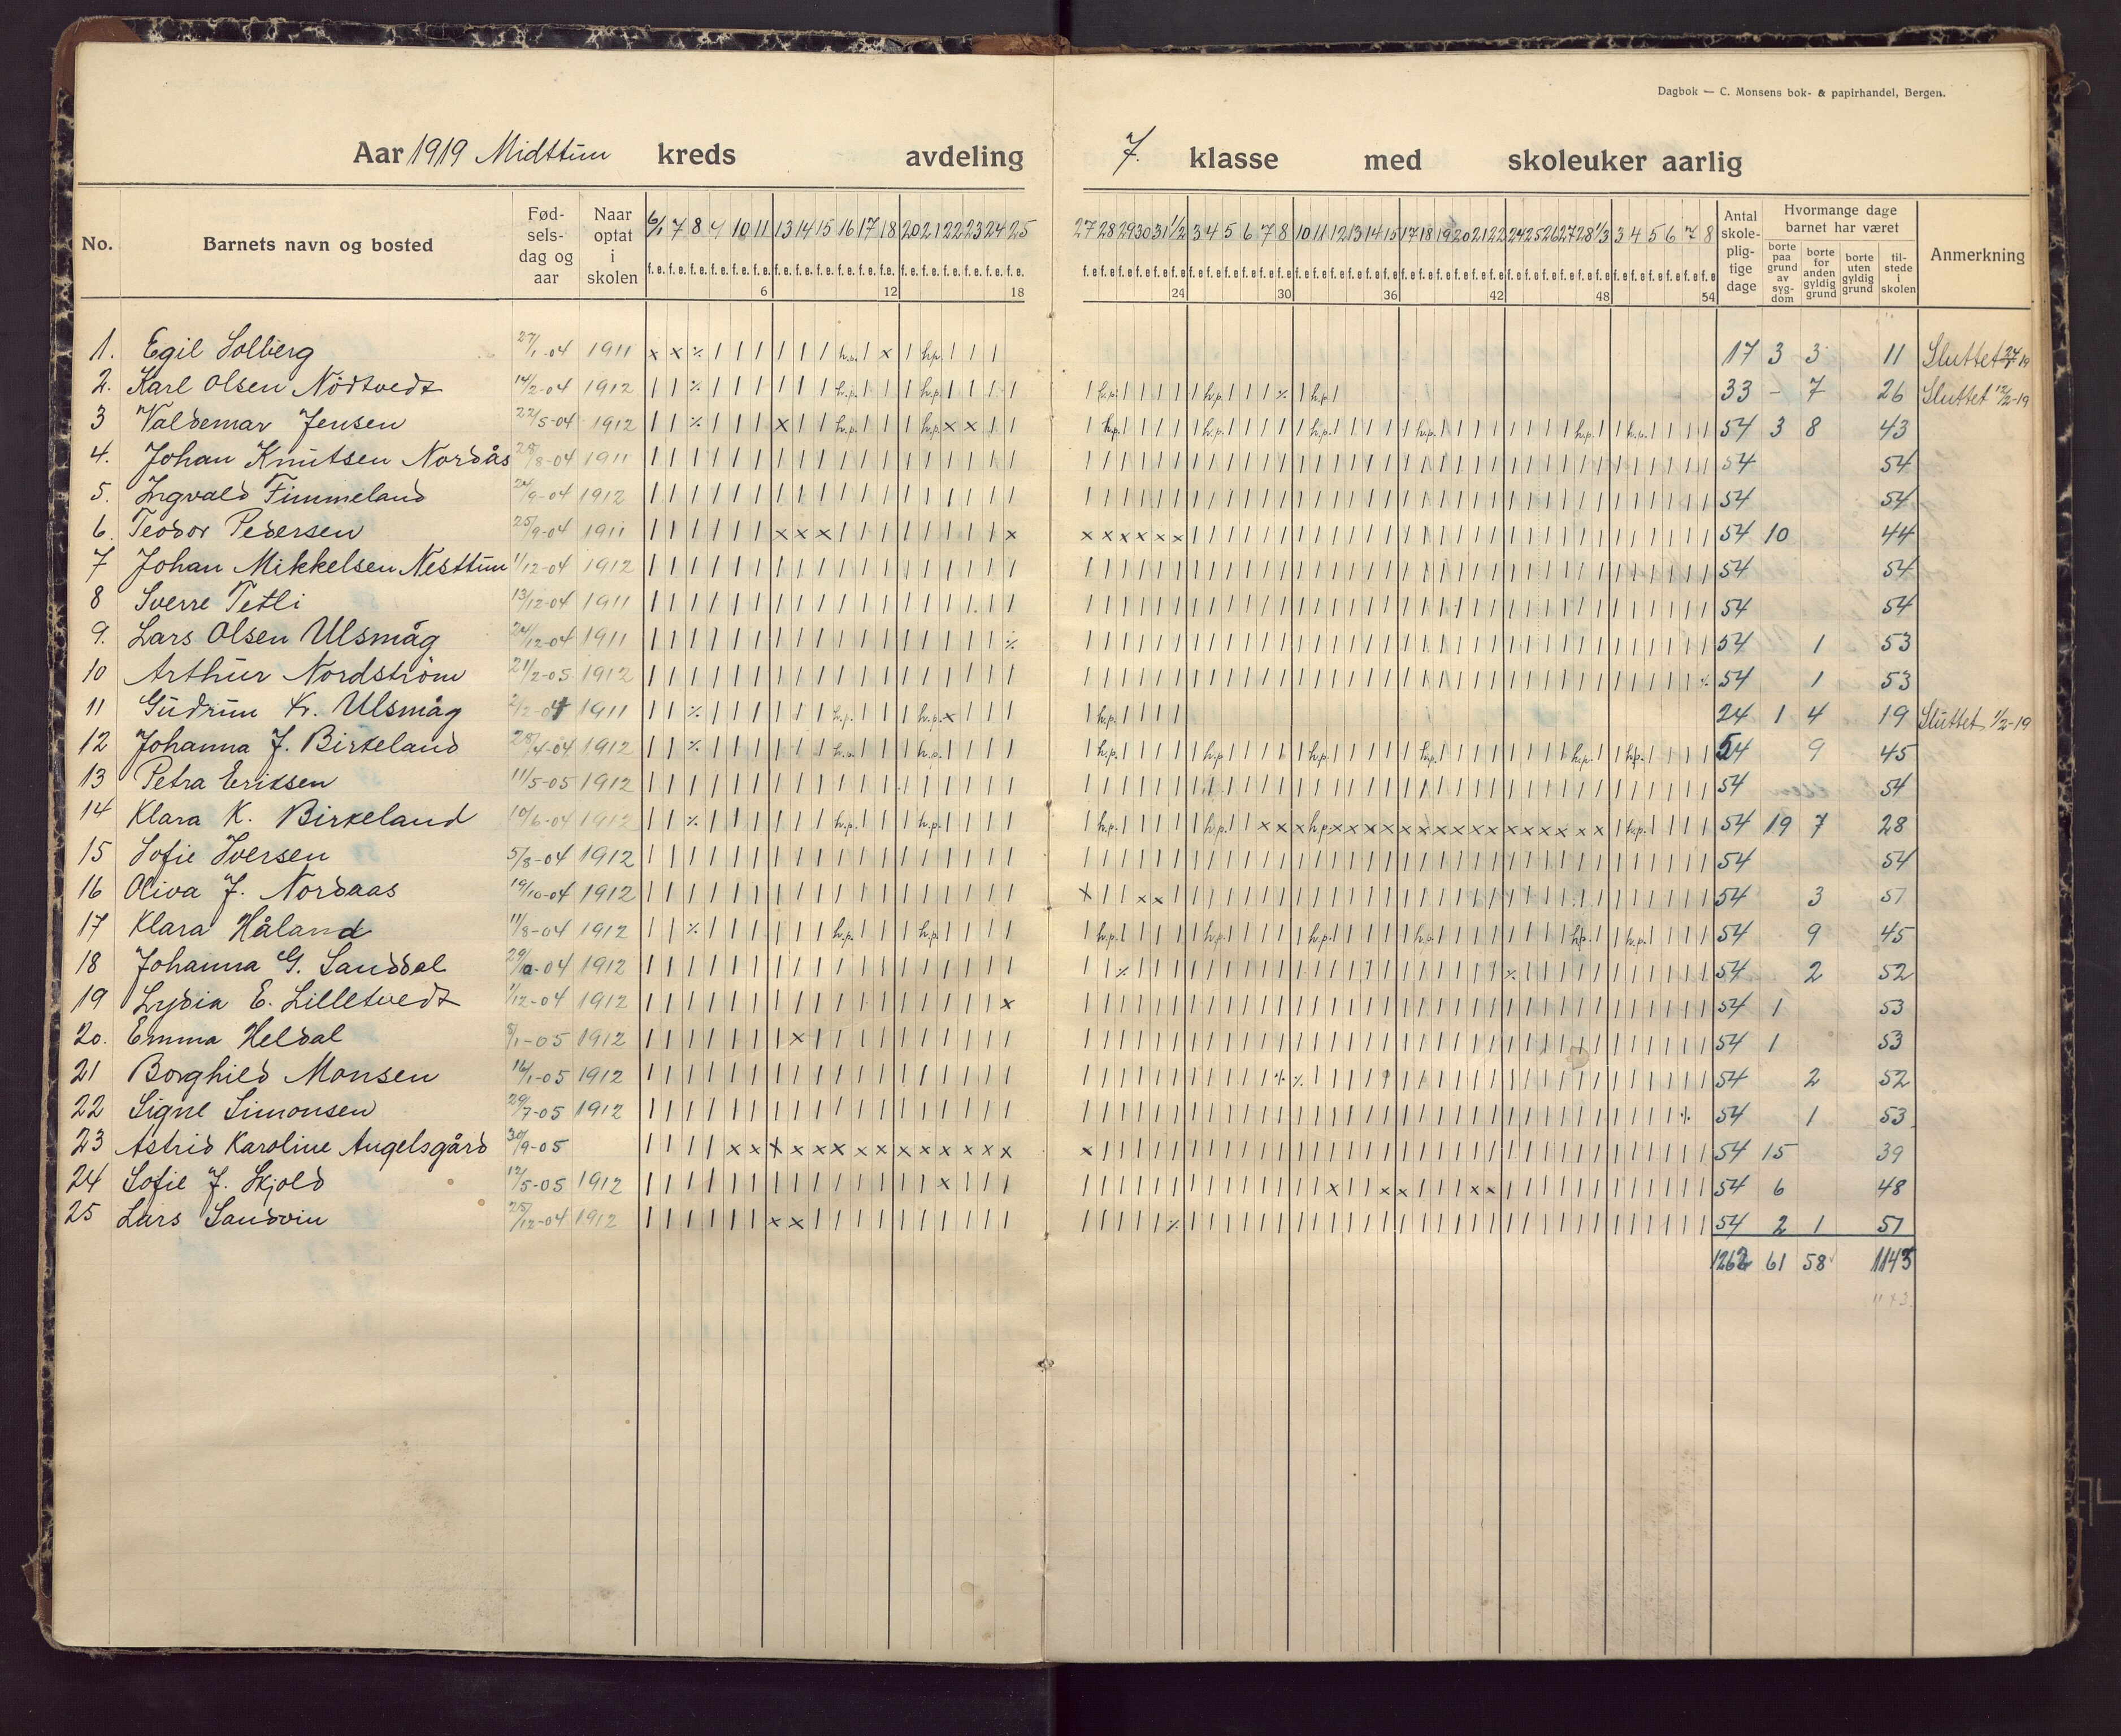 Dagbok — C. Monsens bok- & papirhandel, Bergen.
Aar 1919 Midttun kreds avdeling 7. klasse med skoleuker aarlig
No. Barnets navn og bosted Fød-sels-dag og aar Naar optat i skolen 6/1 7 8 9 10 11 13 14 15 16 17 18 20 21 22 23 24 25 27 28 29 30 31 1/2 3 4 5 6 7 8 10 11 12 13 14 15 17 18 19 20 21 22 24 25 26 27 28 1/3 3 4 5 6 7 8 Antal skole-plig-tige dage Hvormange dage barnet har været borte paa grund av syg-dom borte for anden gyldig grund borte uten gyldig grund til-stede i skolen Anmerkning
6 12 18 24 30 36 42 48 54
1. Egil Solberg 27/1-04 1911 x x ٪ | | | | | | h.p. | x | h.p. | | | 17 3 3 11 Sluttet 24/1 19
2. Karl Olsen Nödtvedt 14/2-04 1912 33 - 7 26 Sluttet 12/2-19
3 Valdemar Jensen 22/5-04 1912 54 3 8 43
4. Johan Knutsen Nordås 28/8-04 1911 54 54
5. Ingvald Fimmeland 24/9-04 1912 54 54
6. Teodor Pedersen 25/9-04 1911 54 10 44
7 Johan Mikkelsen Nesttun 1/12-04 1912 54 54
8 Sverre Tetli 13/12-04 1911 54 54
9. Lars Olsen Ulsmåg 24/12-04 1911 54 1 53
10 Arthur Nordström 21/2-05 1912 54 1 53
11 Gudrun Kr. Ulsmåg 2/12-04 1911 24 1 4 19 Sluttet 1/2-19
12 Johanna J. Birkeland 28/4-04 1912 54 9 45
13 Petra Eriksen 11/5-05 1912 54 54
14 Klara K. Birkeland 10/6-04 1912 54 19 7 28
15 Sofie Iversen 5/8-04 1912 54 54
16 Oliva J. Nordaas 19/10-04 1912 54 3 51
17 Klara Håland 11/8-04 1912 54 9 45
18 Johanna G. Sanddal 1912 54 2 52
19 Lydia E. Lilletvedt 1/12-04 1912 54 1 53
20. Emma Heldal 8/1-05 1912 54 1 53
21 Borghild Monsen 16/1-05 1912 54 2 52
22 Signe Simonsen 29/7-05 1912 54 1 53
23 Astrid Karoline Angelsgård 30/9-05 54 15 39
24 Sofie J. Skjold 12/5-05 1912 54 6 48
25 Lars Sandvin 25/12-04 1912 54 2 1 51
1262 61 58 1143